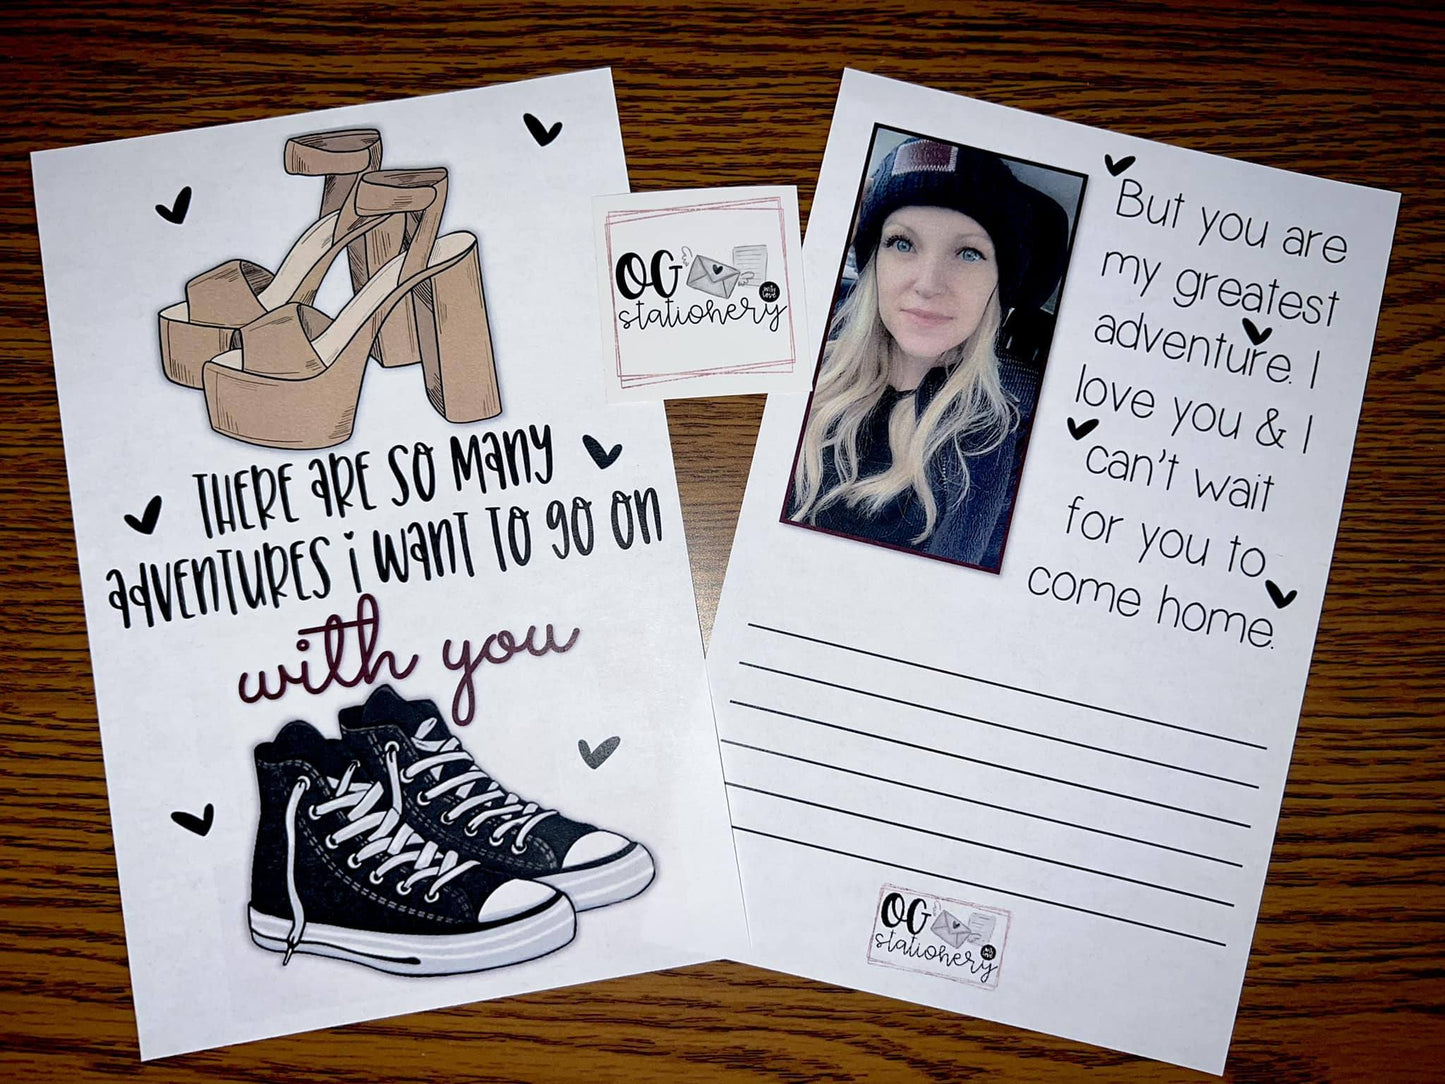 THERE ARE SO MANY
ADVENTURES i WANT TO GO ON
with you
OG
stationery
with
love
But you are
my greatest
adventure. I
love you & I
can't wait
for you to
come home.
OG
stationery